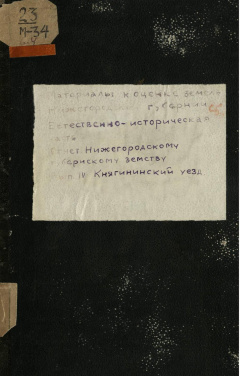 23
М-34
Материалы к оценке земель
Нижегородской губернии
Естественно-историческая
часть
Отчет Нижегородскому
губернскому земству
вып IV Княгининский уезд